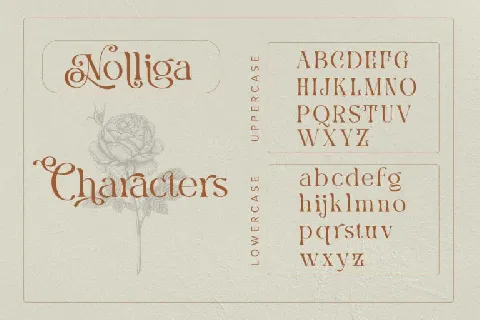 Nolliga
Characters
UPPERCASE
ABCDEFG
HIJKLMNO
PQRSTUV
WXYZ
LOWERCASE
abcdefg
hijklmno
pqrstuv
wxyz